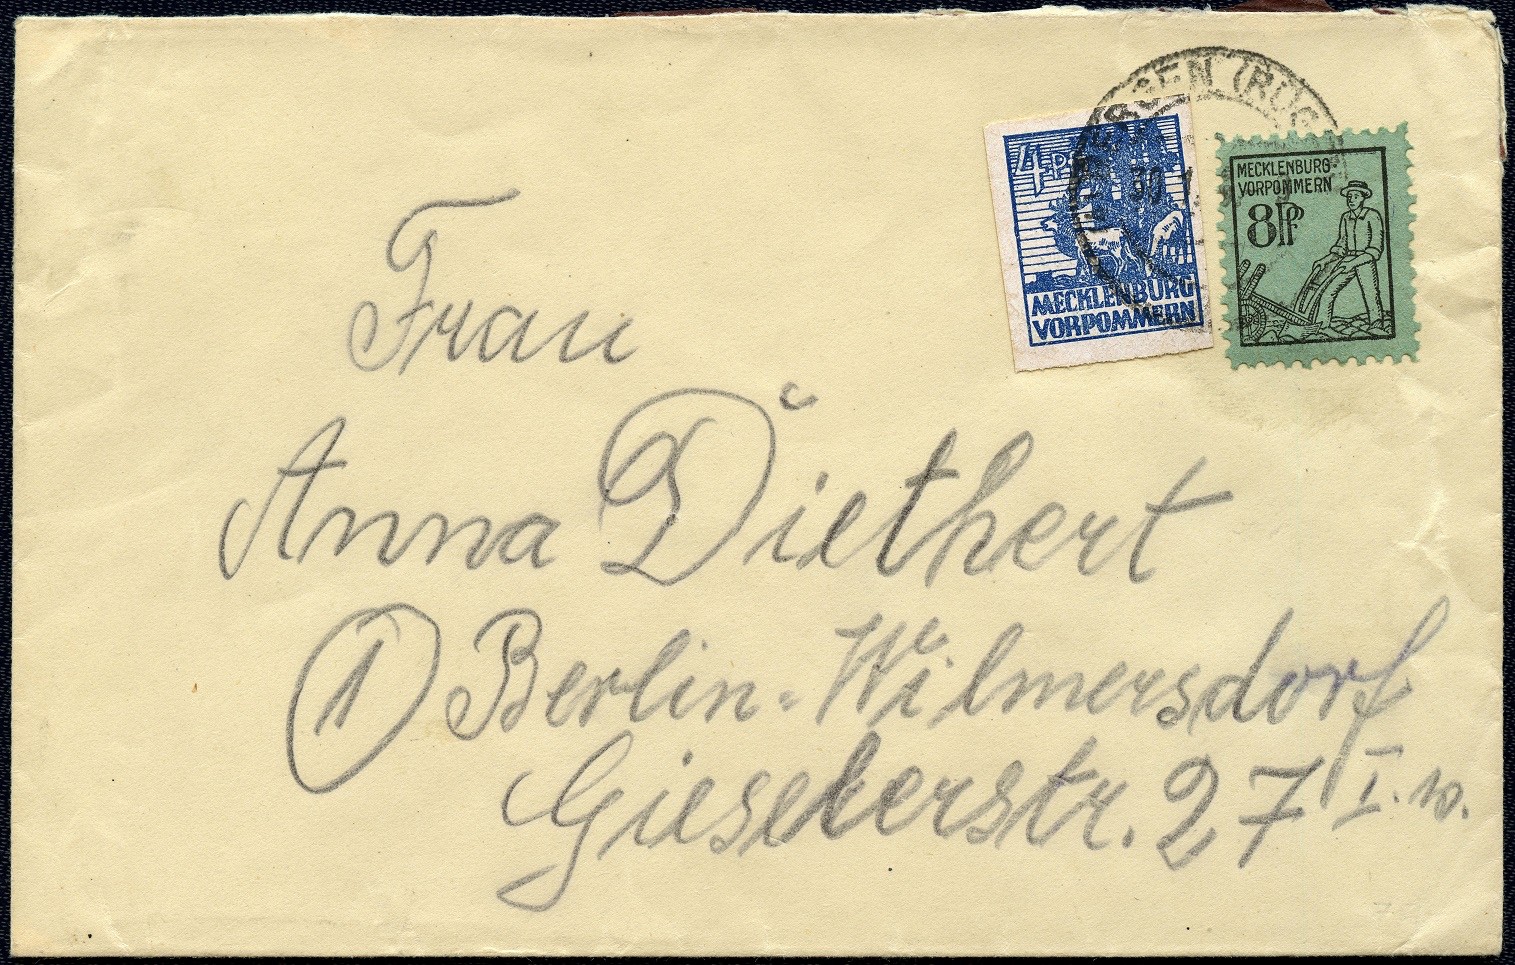 BERGEN (RÜG
30.1
4 Pf
MECKLENBURG
VORPOMMERN
MECKLENBURG-
VORPOMMERN
8 Pf
Frau
Anna Diethert
① Berlin-Wilmersdorf
Gieselerstr. 27 I. w.